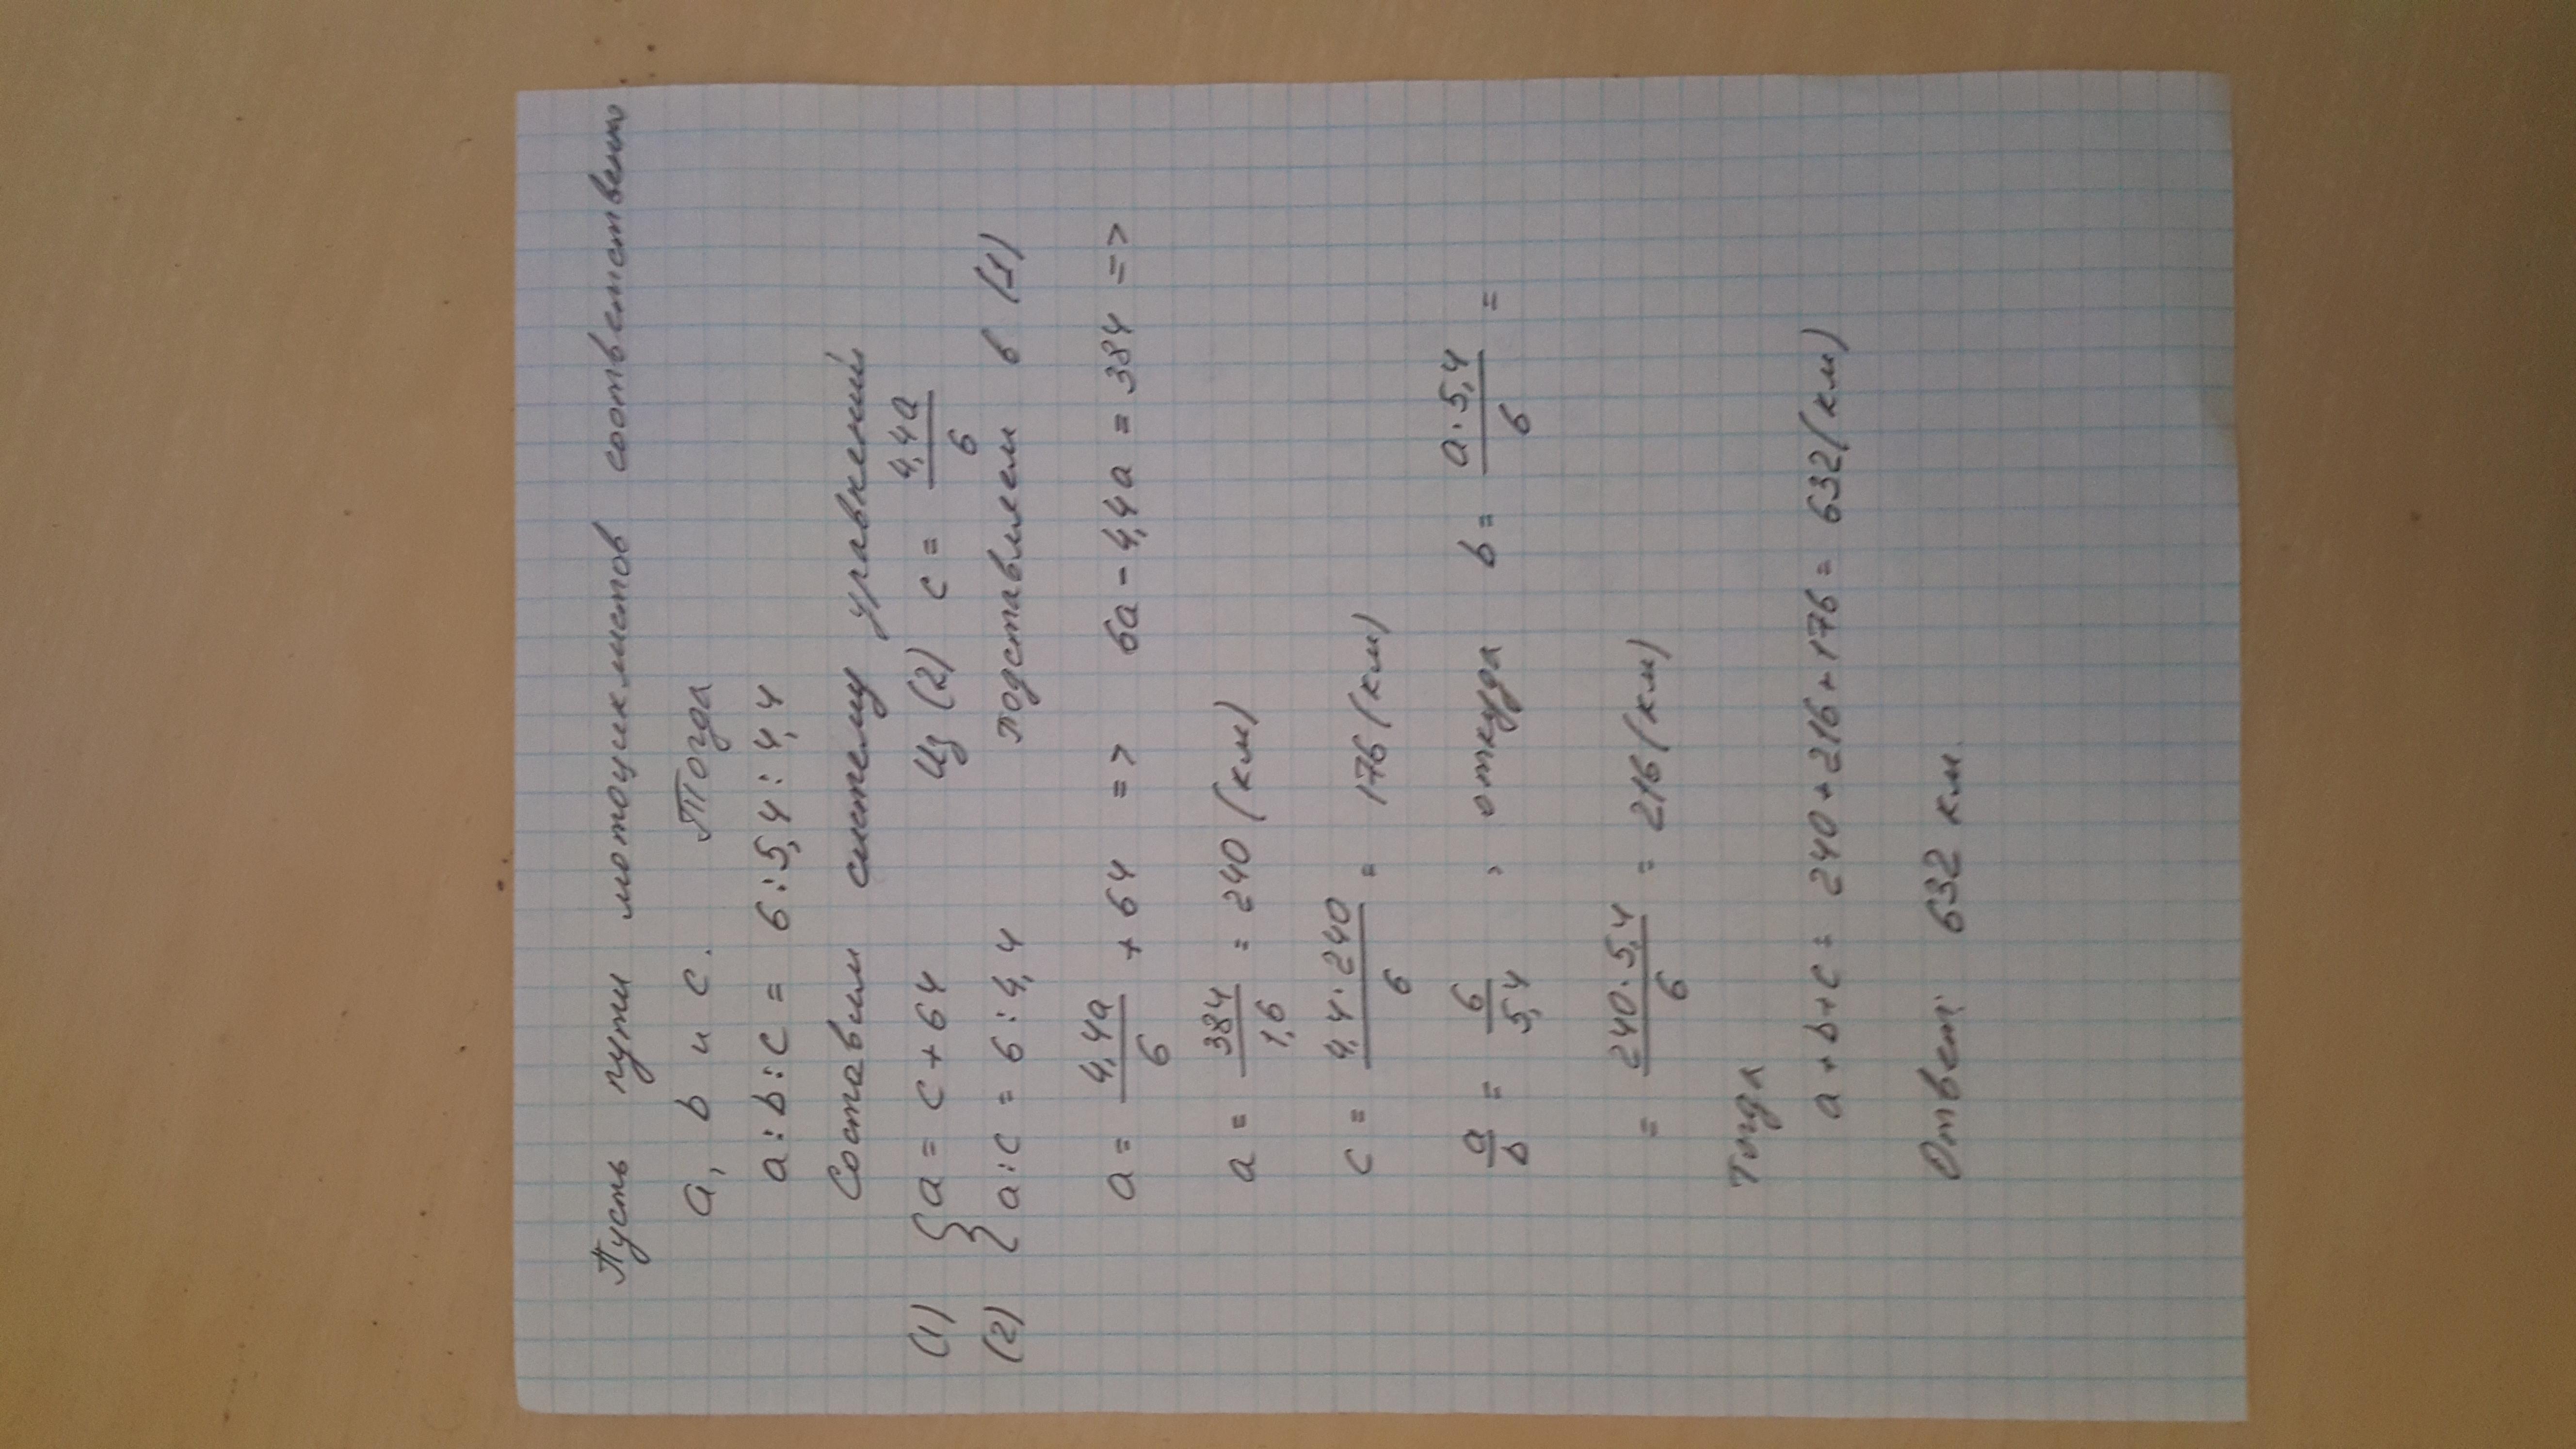 Пусть пути мотоциклистов соответственно
a, b и c. Тогда
a : b : c = 6 : 5,4 : 4,4
Составим систему уравнений
(1) { a = c + 64 Из (2) c = 4,4a / 6
(2) { a : c = 6 : 4,4 подставляем в (1)
a = 4,4a / 6 + 64 => 6a - 4,4a = 384 =>
a = 384 / 1,6 = 240 (км)
c = 4,4 · 240 / 6 = 176 (км)
a / b = 6 / 5,4 , откуда b = a · 5,4 / 6 =
= 240 · 5,4 / 6 = 216 (км)
Тогда
a + b + c = 240 + 216 + 176 = 632 (км)
Ответ: 632 км.